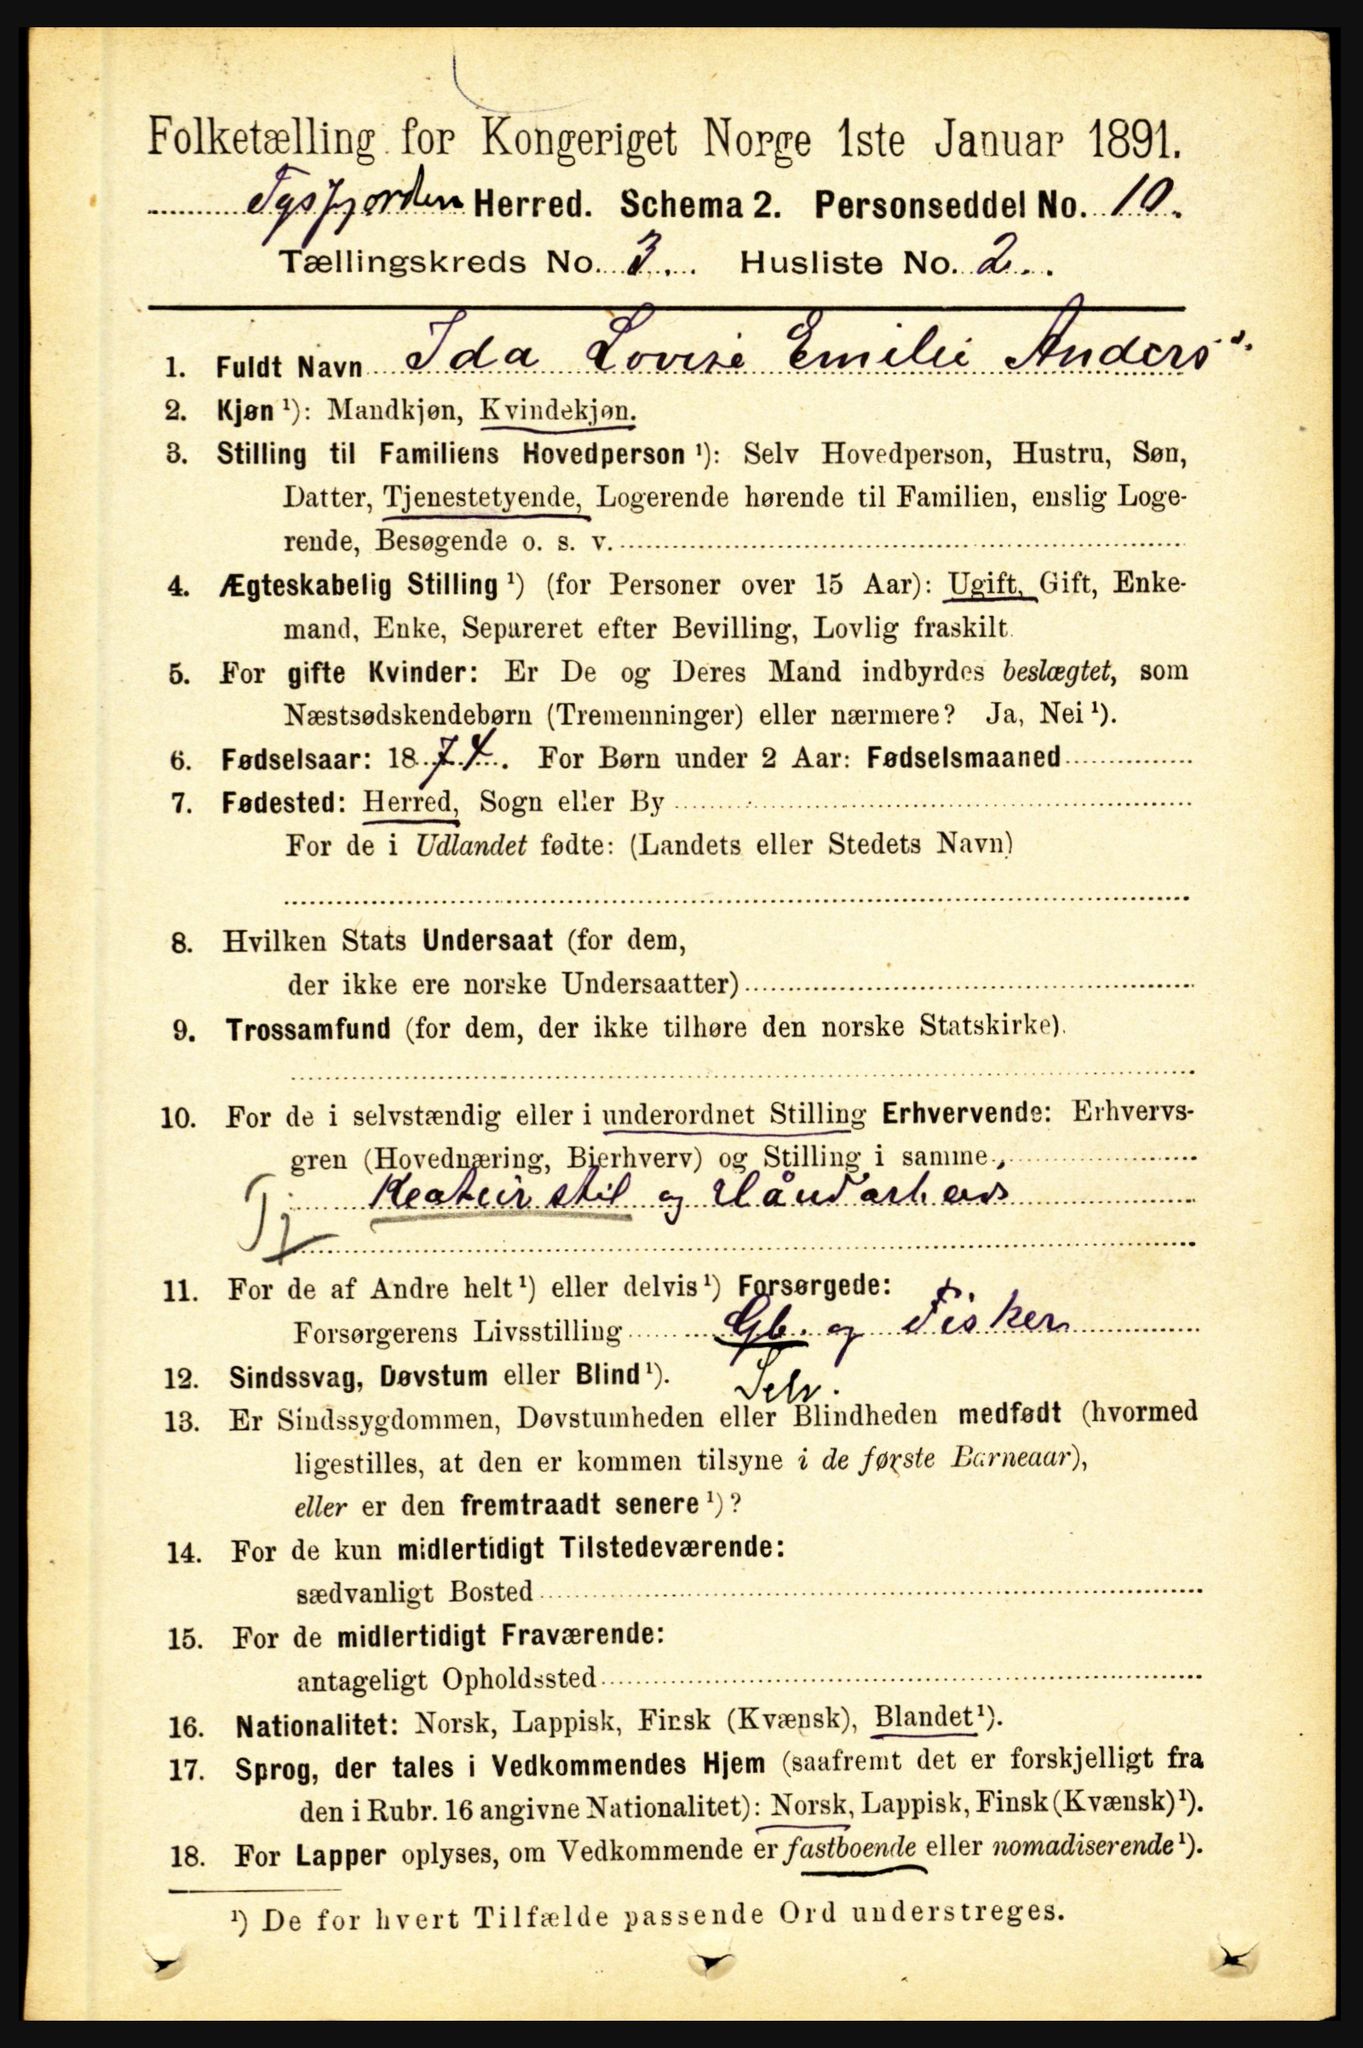 Folketælling for Kongeriget Norge 1ste Januar 1891.
Tysfjorden Herred. Schema 2. Personseddel No. 10.
Tællingskreds No. 3. Husliste No. 2.
1. Fuldt Navn Ida Lovise Emilie Anders
2. Kjøn ¹): Mandkjøn, Kvindekjøn.
3. Stilling til Familiens Hovedperson ¹): Selv Hovedperson, Hustru, Søn,
Datter, Tjenestetyende, Logerende hørende til Familien, enslig Loge-
rende, Besøgende o. s. v.
4. Ægteskabelig Stilling ¹) (for Personer over 15 Aar): Ugift, Gift, Enke-
mand, Enke, Separeret efter Bevilling, Lovlig fraskilt.
5. For gifte Kvinder: Er De og Deres Mand indbyrdes beslægtet, som
Næstsødskendebørn (Tremenninger) eller nærmere? Ja, Nei ¹).
6. Fødselsaar: 1874. For Børn under 2 Aar: Fødselsmaaned
7. Fødested: Herred, Sogn eller By
For de i Udlandet fødte: (Landets eller Stedets Navn)
8. Hvilken Stats Undersaat (for dem,
der ikke ere norske Undersaatter)
9. Trossamfund (for dem, der ikke tilhøre den norske Statskirke).
10. For de i selvstændig eller i underordnet Stilling Erhvervende: Erhvervs-
gren (Hovednæring, Bierhverv) og Stilling i samme.
Tj. Kreaturstil og Håndarbeide
11. For de af Andre helt ¹) eller delvis ¹) Forsørgede:
Forsørgerens Livsstilling Gb. og Fisker
12. Sindssvag, Døvstum eller Blind ¹). Selv.
13. Er Sindssygdommen, Døvstumheden eller Blindheden medfødt (hvormed
ligestilles, at den er kommen tilsyne i de første Barneaar),
eller er den fremtraadt senere ¹)?
14. For de kun midlertidigt Tilstedeværende:
sædvanligt Bosted
15. For de midlertidigt Fraværende:
antageligt Opholdssted
16. Nationalitet: Norsk, Lappisk, Finsk (Kvænsk), Blandet ¹).
17. Sprog, der tales i Vedkommendes Hjem (saafremt det er forskjelligt fra
den i Rubr. 16 angivne Nationalitet): Norsk, Lappisk, Finsk (Kvænsk) ¹).
18. For Lapper oplyses, om Vedkommende er fastboende eller nomadiserende ¹).
¹) De for hvert Tilfælde passende Ord understreges.